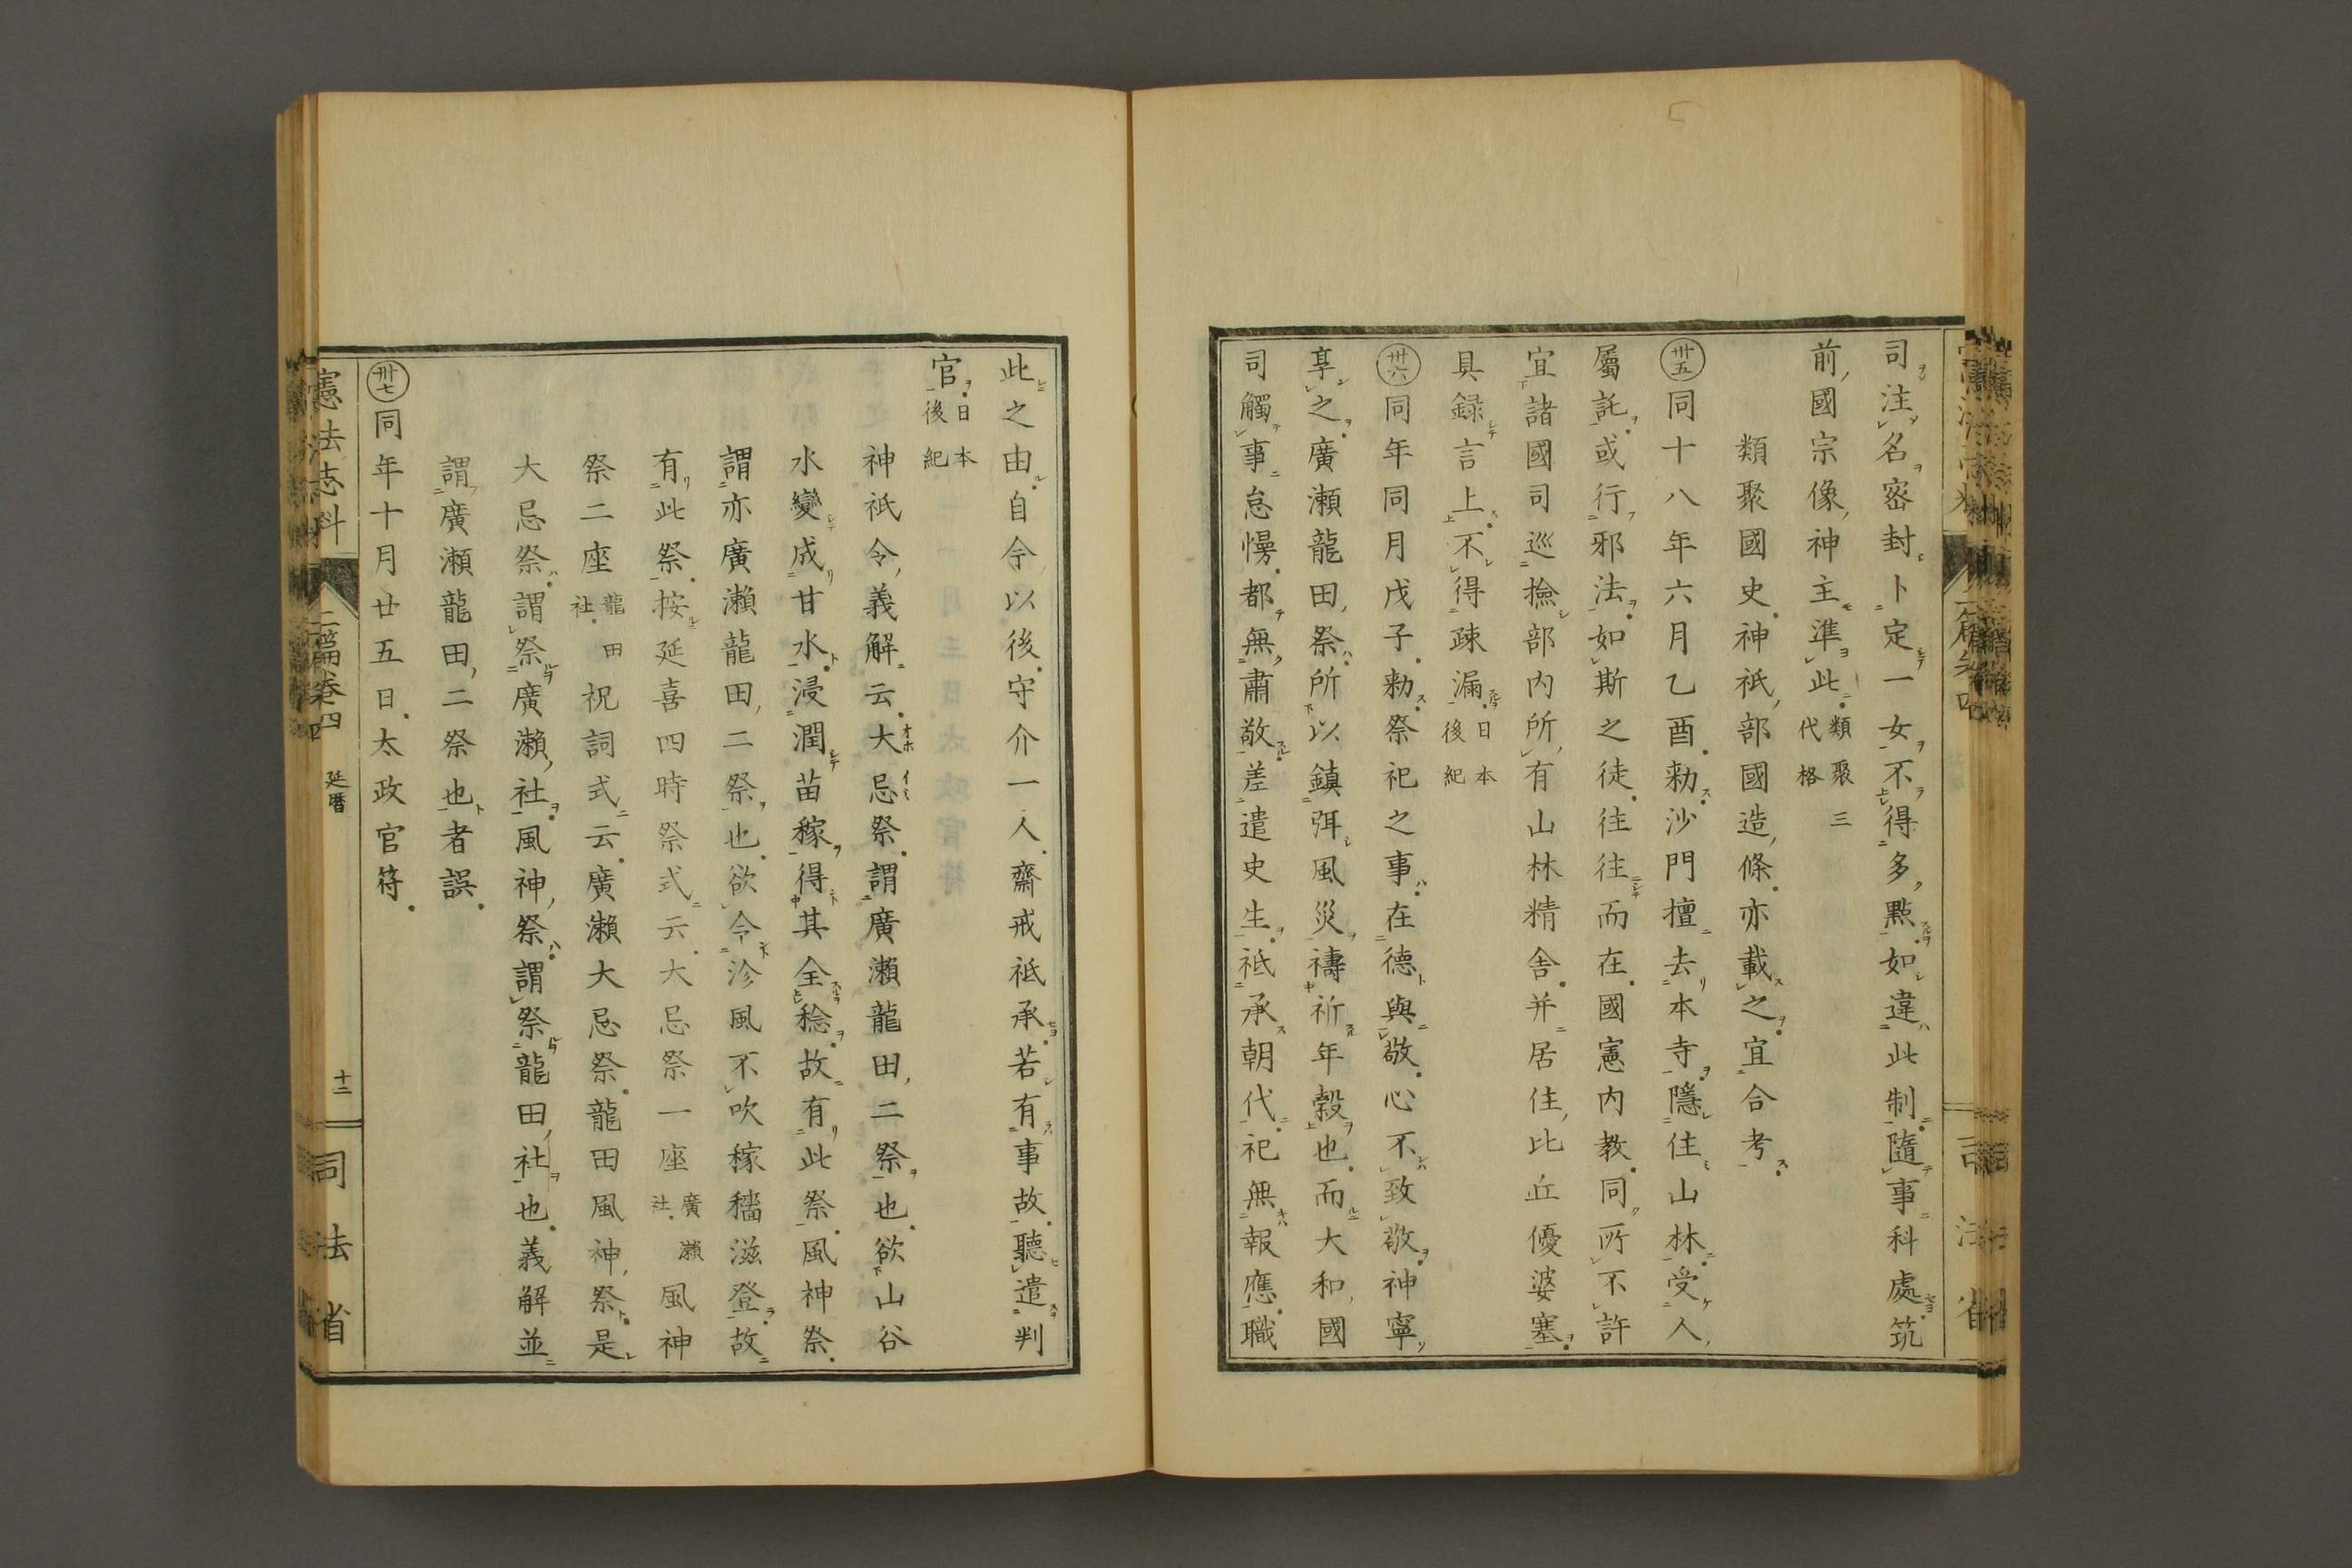 司注名密封卜定一女不得多點如違此制隨事科處筑
前國宗像神主準此類聚三代格
類聚國史神祇部國造條亦載之宜合考
卅五同十八年六月乙酉勅沙門擅去本寺隱住山林受人
屬託或行邪法如斯之徒往往而在國憲內教同所不許
宜諸國司巡撿部內所有山林精舍并居住比丘優婆塞
具録言上不得疎漏日本後紀
卅六同年同月戊子勅祭祀之事在德與敬心不致敬神寧
享之廣瀬龍田祭所以鎮弭風災禱祈年穀也而大和國
司觸事怠慢都無肅敬差遣史生祗承朝代祀無報應職
此之由自今以後守介一人齋戒祗承若有事故聽遣判
官日本後紀
神祇令義解云大忌祭謂廣瀬龍田二祭也欲山谷
水變成甘水浸潤苗稼得其全稔故有此祭風神祭
謂亦廣瀬龍田二祭也欲令沴風不吹稼穡滋登故
有此祭按延喜四時祭式云大忌祭一座廣瀬社風神
祭二座龍田社祝詞式云廣瀬大忌祭龍田風神祭是
大忌祭謂祭廣瀬社風神祭謂祭龍田社也義解並
謂廣瀬龍田二祭也者誤
卅七同年十月廿五日太政官符
憲法志料 二篇卷四 延暦 十二 司法省